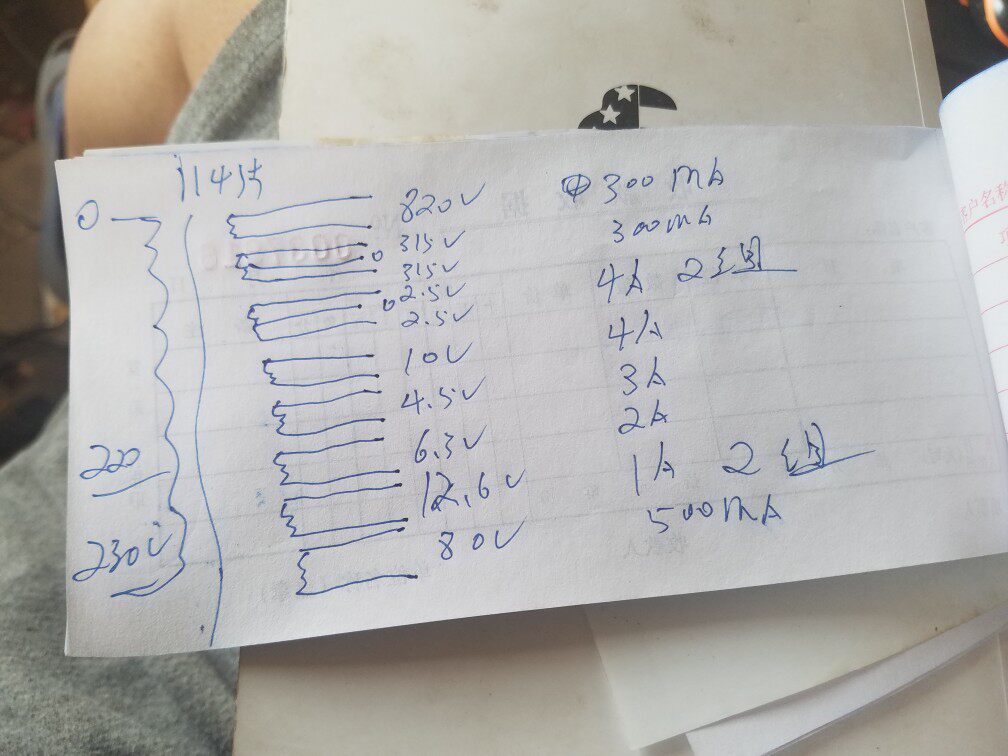 114片
0 820V 300MA
315V 300MA
0
315V 4A 2组
2.5V
0
2.5V 4A
10V 3A
4.5V 2A
220 6.3V 1A 2组
12.6V 500MA
230V 80V